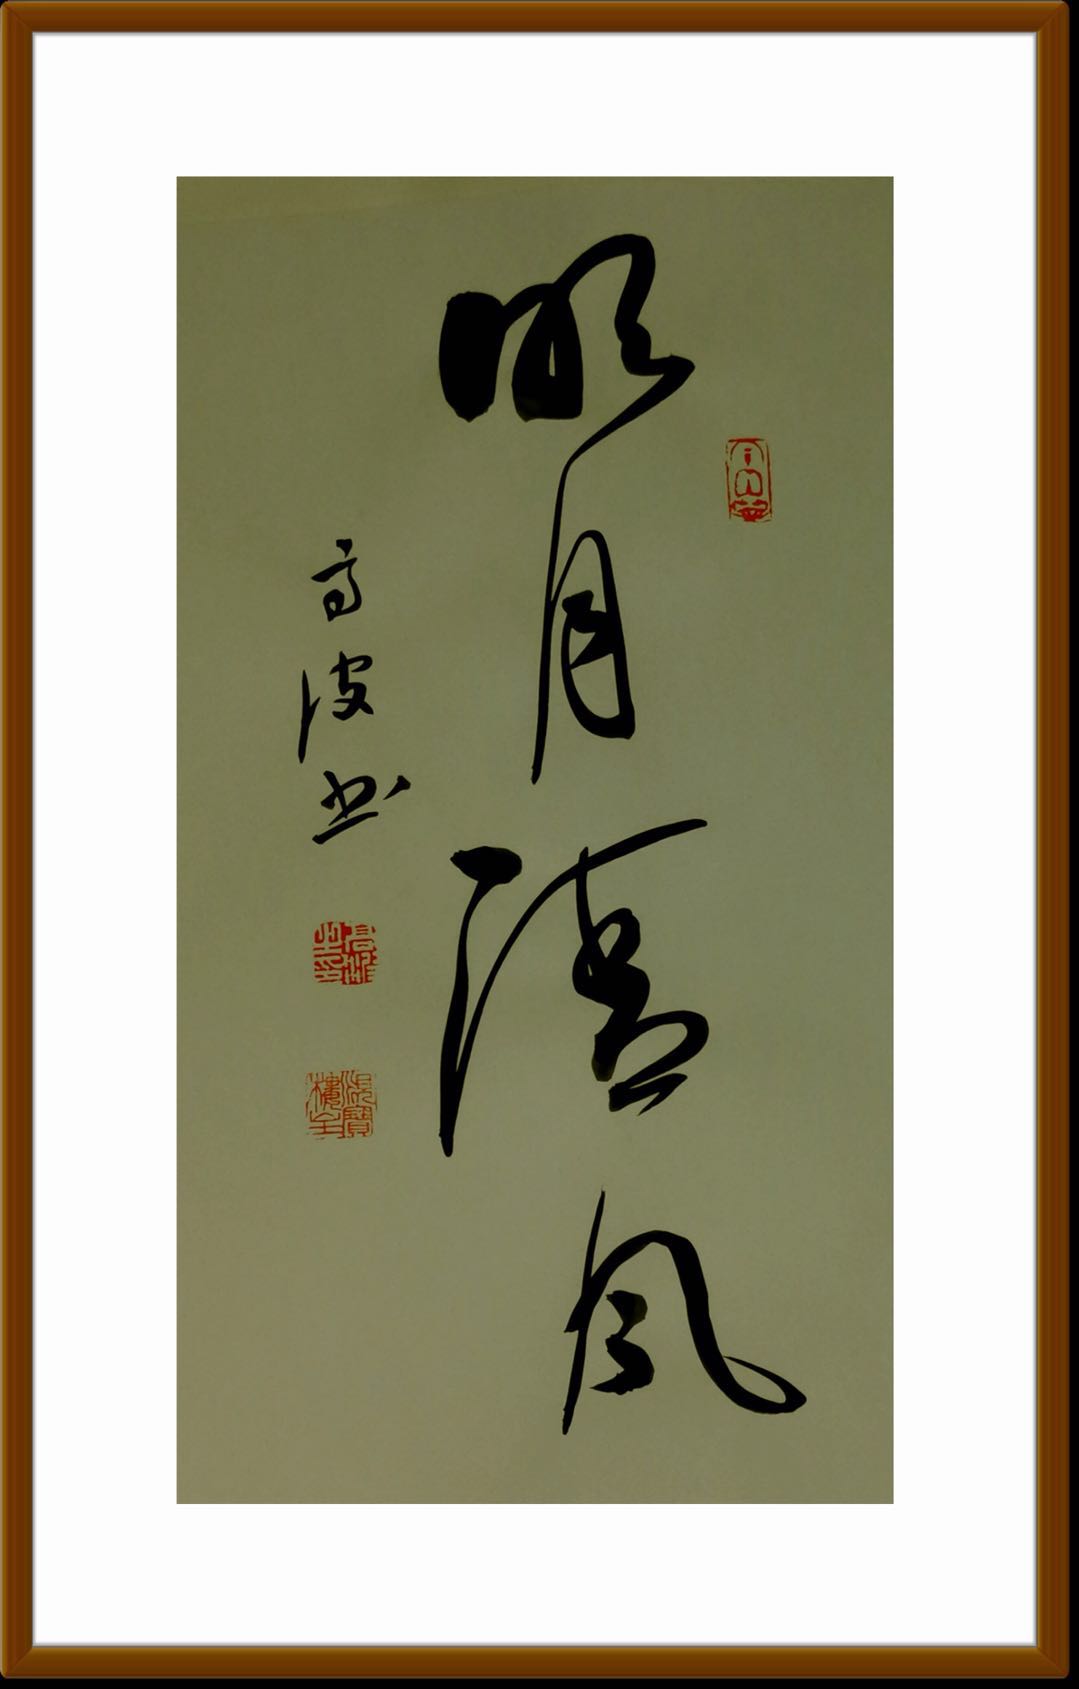 明月清风
高波书